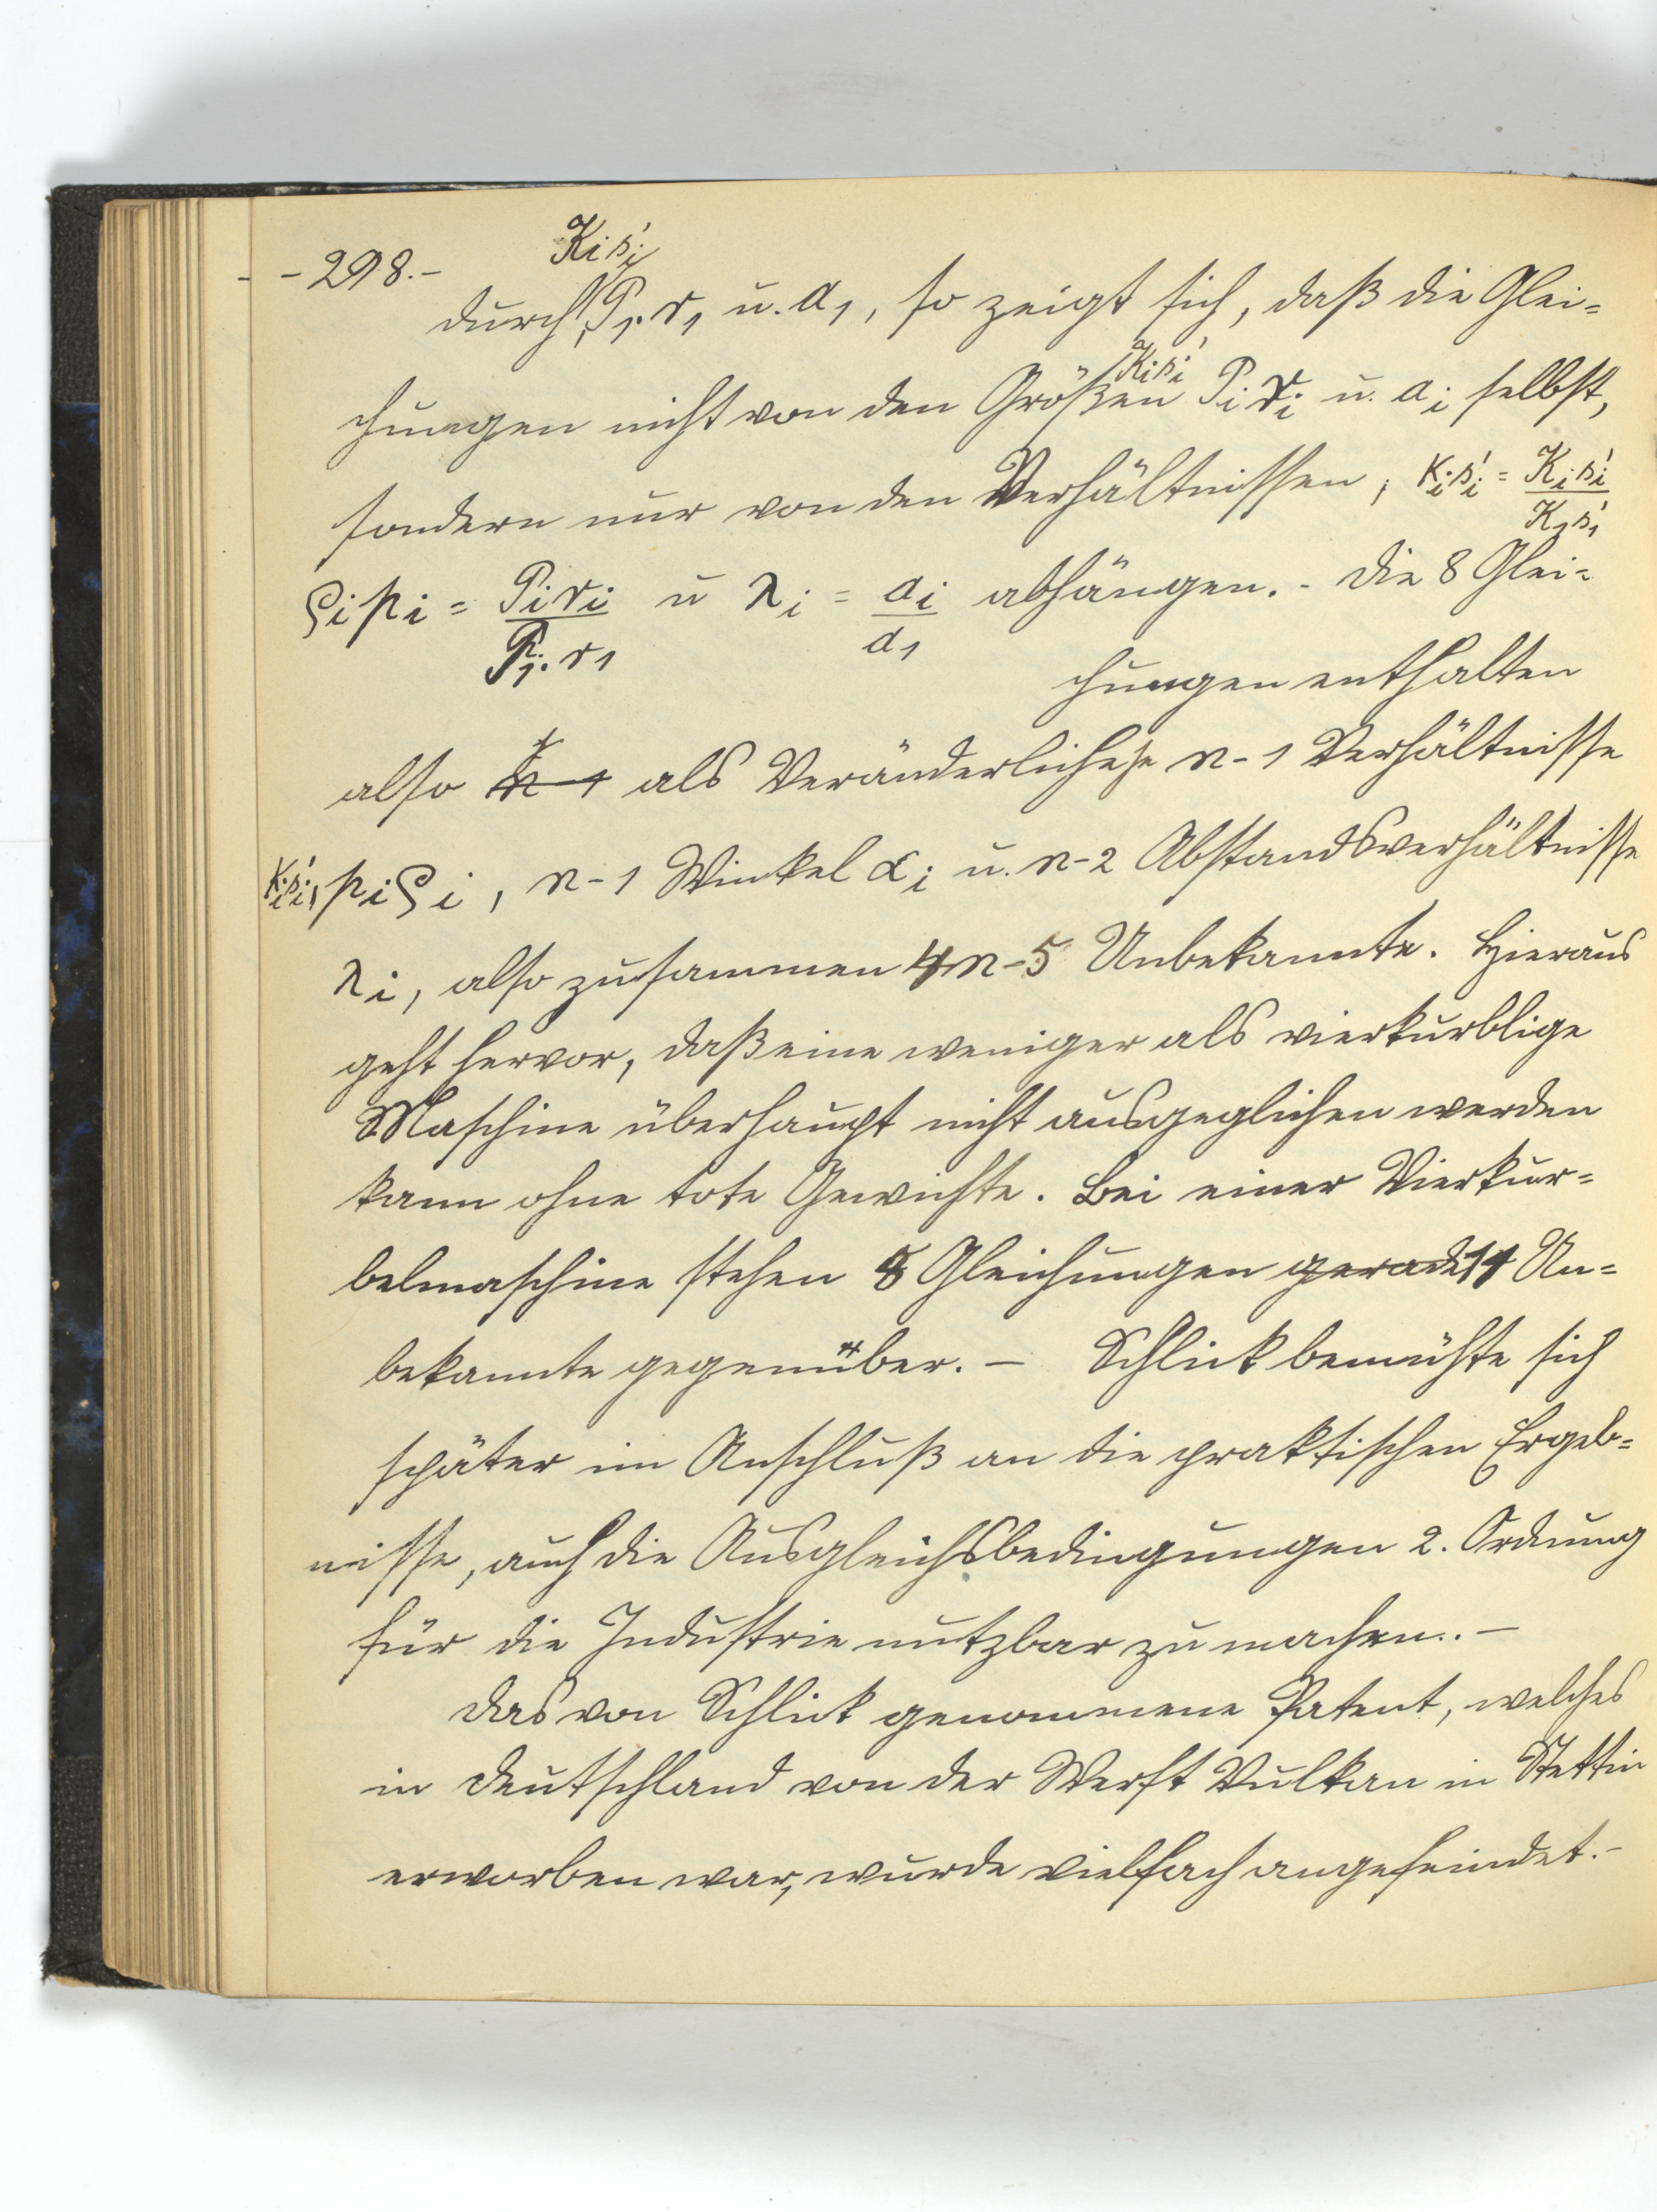 - 298. -
K₁ s'₁
durch, P₁. r₁ u. a₁, so zeigt sich, daß die Glei=
Kᵢ s'ᵢ
chungen nicht von den Größen Pᵢ rᵢ u. aᵢ selbst,
sondern nur von den Verhältnissen, κᵢ s'ᵢ = Kᵢ s'ᵢ / K₁ s'₁
ϱᵢ pᵢ = Pᵢ rᵢ / P₁. r₁ u λᵢ = aᵢ / a₁ abhängen. - Die 8 Glei=
chungen enthalten
also n-1 als Veränderliche je n-1 Verhältnisse
κᵢ s'ᵢ, pᵢ ϱᵢ, n-1 Winkel αᵢ u. n-2 Abstandsverhältnisse
λᵢ, also zusammen 4n-5 Unbekannte. Hieraus
geht hervor, daß eine weniger als vierkurblige
Maschine überhaupt nicht ausgeglichen werden
kann ohne tote Gewichte. Bei einer Vierkur=
belmaschine stehen 8 Gleichungen gerade 11 Un=
bekannte gegenüber. — Schlick bemühte sich
später im Anschluß an die praktischen Ergeb=
nisse, auch die Ausgleichsbedingungen 2. Ordnung
für die Industrie nutzbar zu machen. —
Das von Schlick genommene Patent, welches
in Deutschland von der Werft Vulkan in Stettin
erworben war, wurde vielfach angefeindet. -